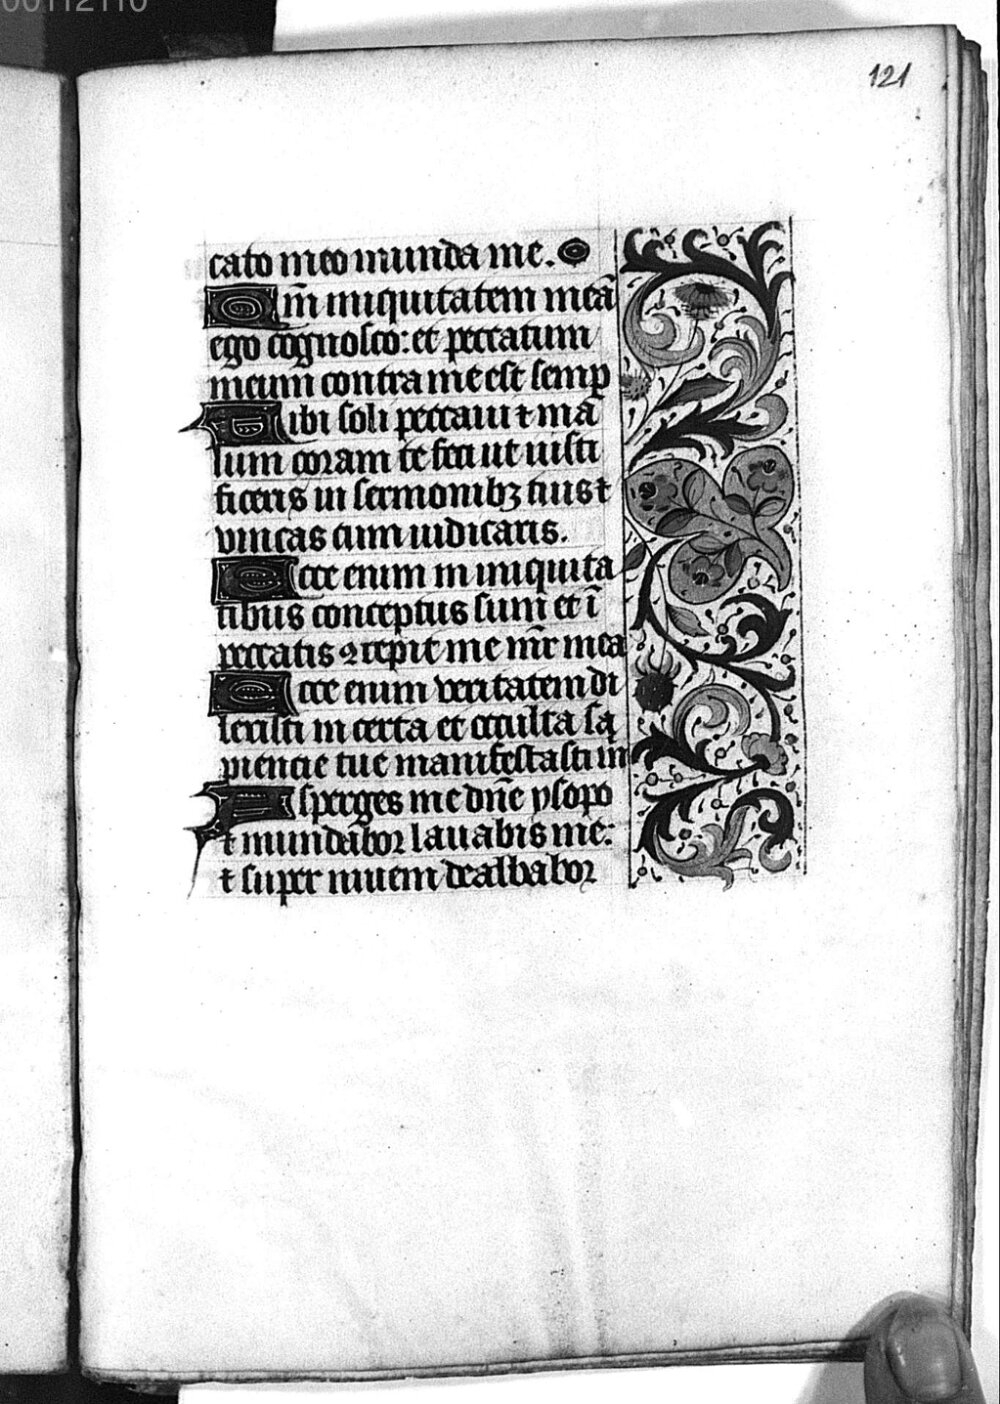 00112110
121
cato meo munda me.
Qm̄ iniquitatem meā
ego cognosco: et peccatum
meum contra me est semp
Tibi soli peccaui ⁊ ma
lum coram te feci ut iusti
ficeris in sermonibꝫ tuis ⁊
vincas cum iudicaris.
Ecce enim in iniquita
tibus conceptus sum et ī
peccatis ꝯcepit me mr̄ mea
Ecce enim veritatem di
lexisti incerta et occulta sa
piencie tue manifestasti m
Asperges me dn̄e ysopo
⁊ mundabor lauabis me:
⁊ super niuem dealbabor